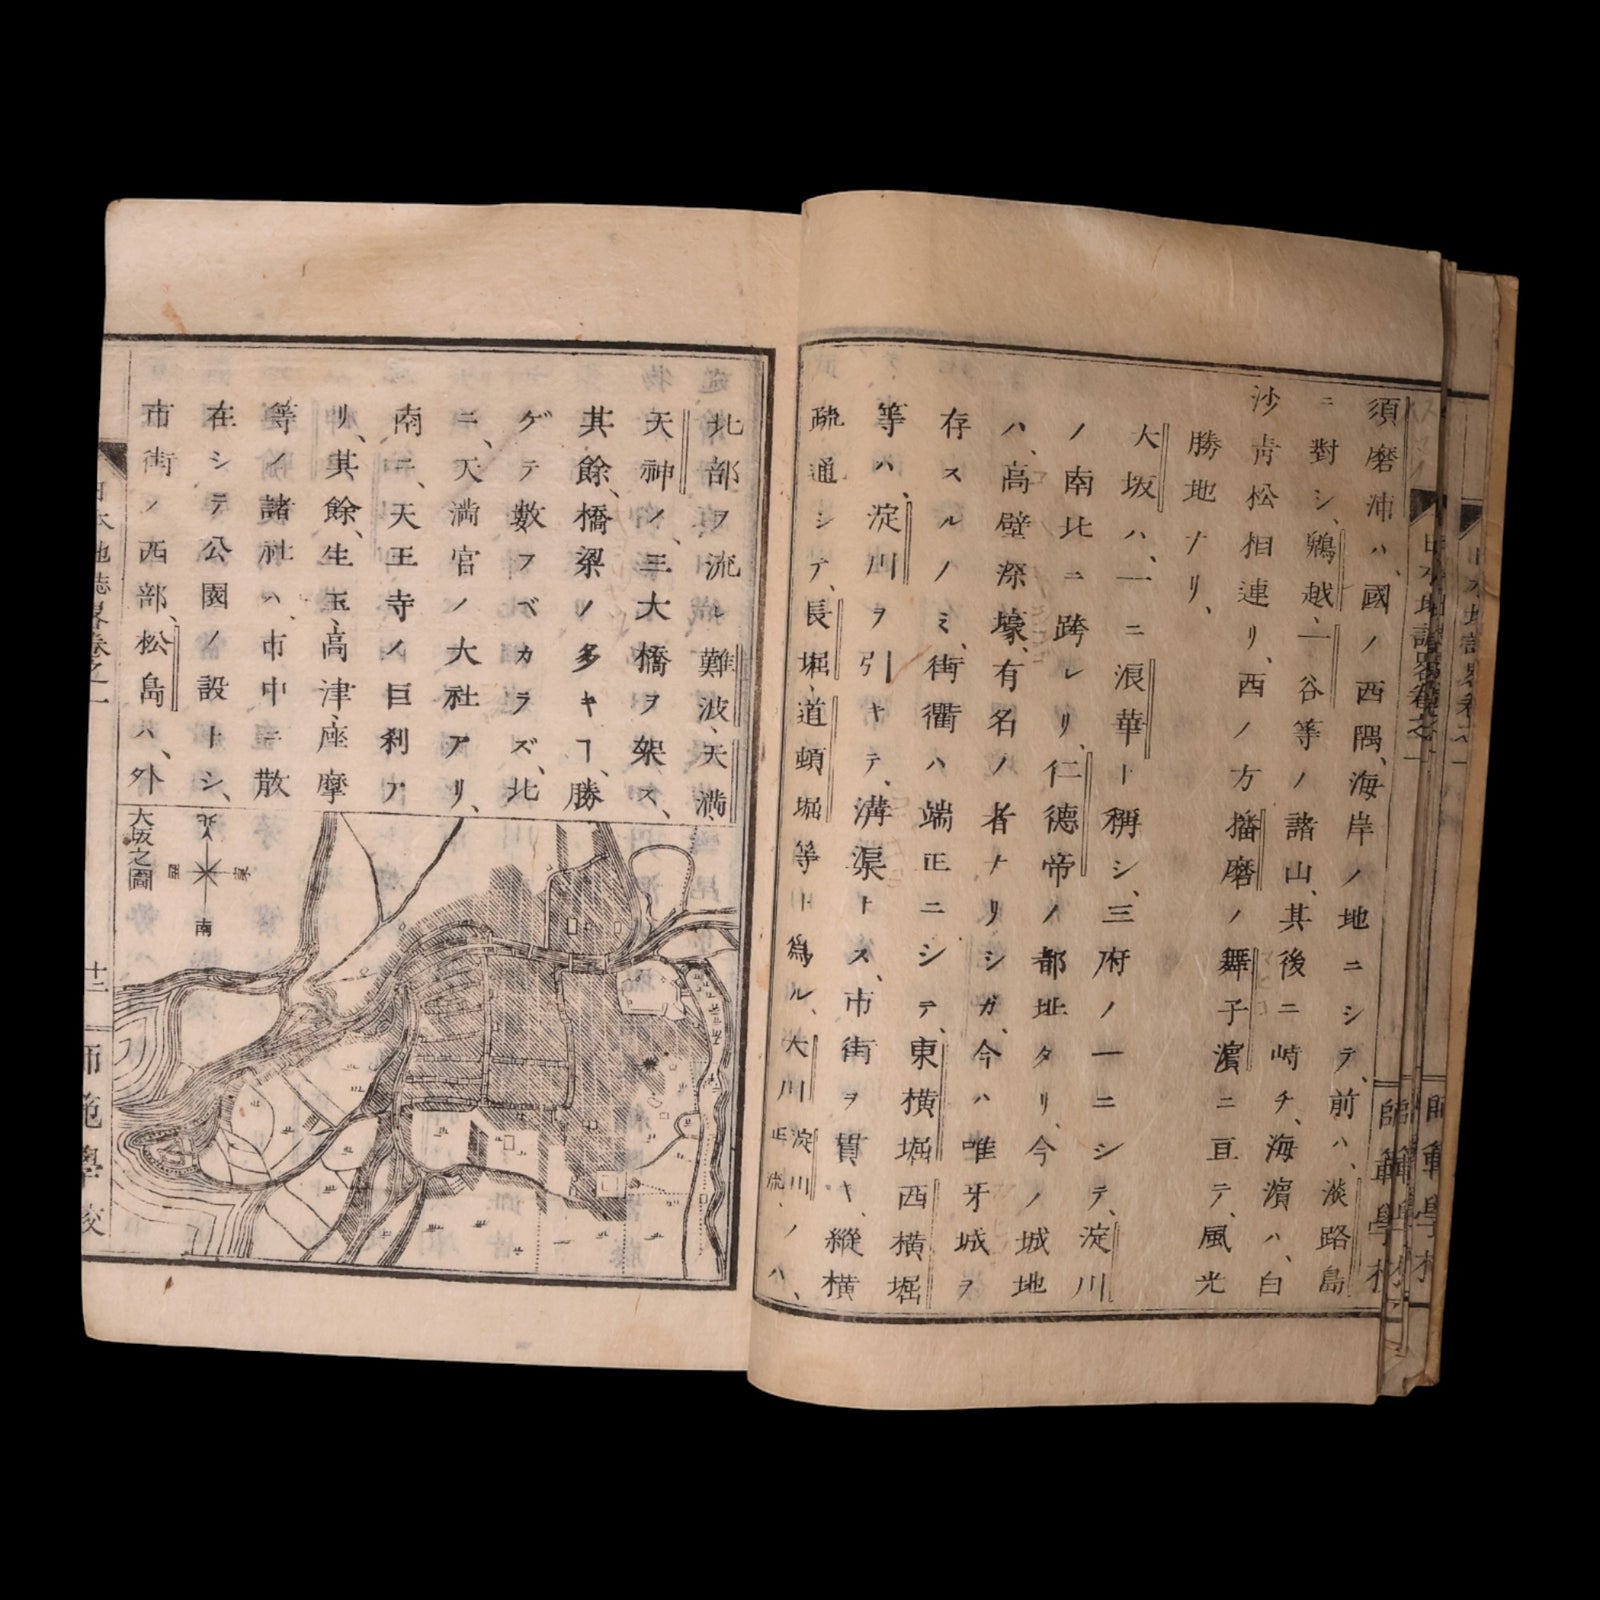 須磨沛ハ、國ノ西隅、海岸ノ地ニシテ、前ハ、淡路島
ニ對シ、鵯越、一谷等ノ諸山、其後ニ峙チ、海濵ハ、白
沙靑松相連リ、西ノ方播磨ノ舞子濵ニ亘テ、風光
勝地ナリ、
大坂ハ、一ニ浪華ト稱シ、三府ノ一ニシテ、淀川
ノ南北ニ跨レリ、仁德帝ノ都址タリ、今ノ城地
ハ、高壁深壕、有名ノ者ナリシガ、今ハ唯牙城ヲ
存スルノミ、街衢ハ端正ニシテ、東橫堀西橫堀
等ハ、淀川ヲ引キテ、溝渠トス、市街ヲ貫キ、縱橫
疏通シテ、長堀、道頓堀等ト爲ル、大川淀川正流、ノハ、
北部ヲ流レ、難波、天満
天神ノ、三大橋ヲ架ス、
其餘、橋梁ノ多キヿ、勝
ゲテ數フベカラズ、北
ニ、天満宮ノ大社アリ、
南ニ、天王寺ノ巨刹ア
リ、其餘、生玉、高津、座摩
等ノ諸社ハ、市中ニ散
在シテ公園ノ設トシ、
市街ノ西部、松島ハ、外
大坂之圖
北
東
西
南
日本地誌畧卷之一
十二
師範學校
日本地誌畧卷之一
師範學校